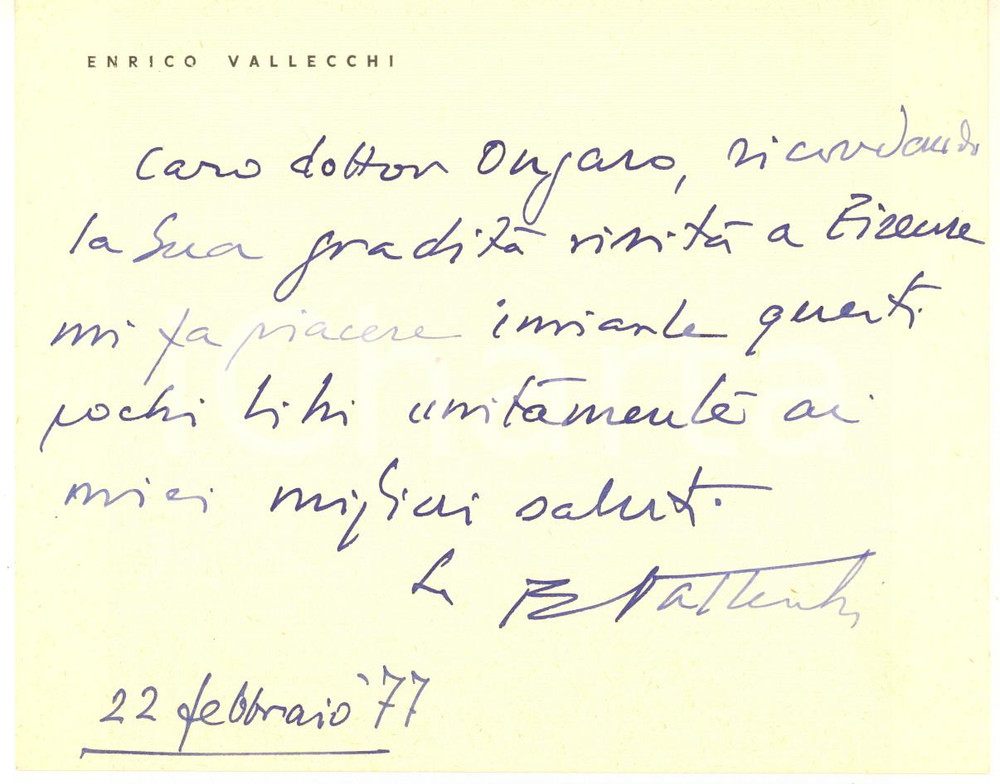 ENRICO VALLECCHI
Caro dottor Ongaro, ricordando
la Sua gradita visita a Firenze
mi fa piacere inviarle questi
pochi libri unitamente ai
miei migliori saluti.
Suo E Vallecchi
22 febbraio '77
charta